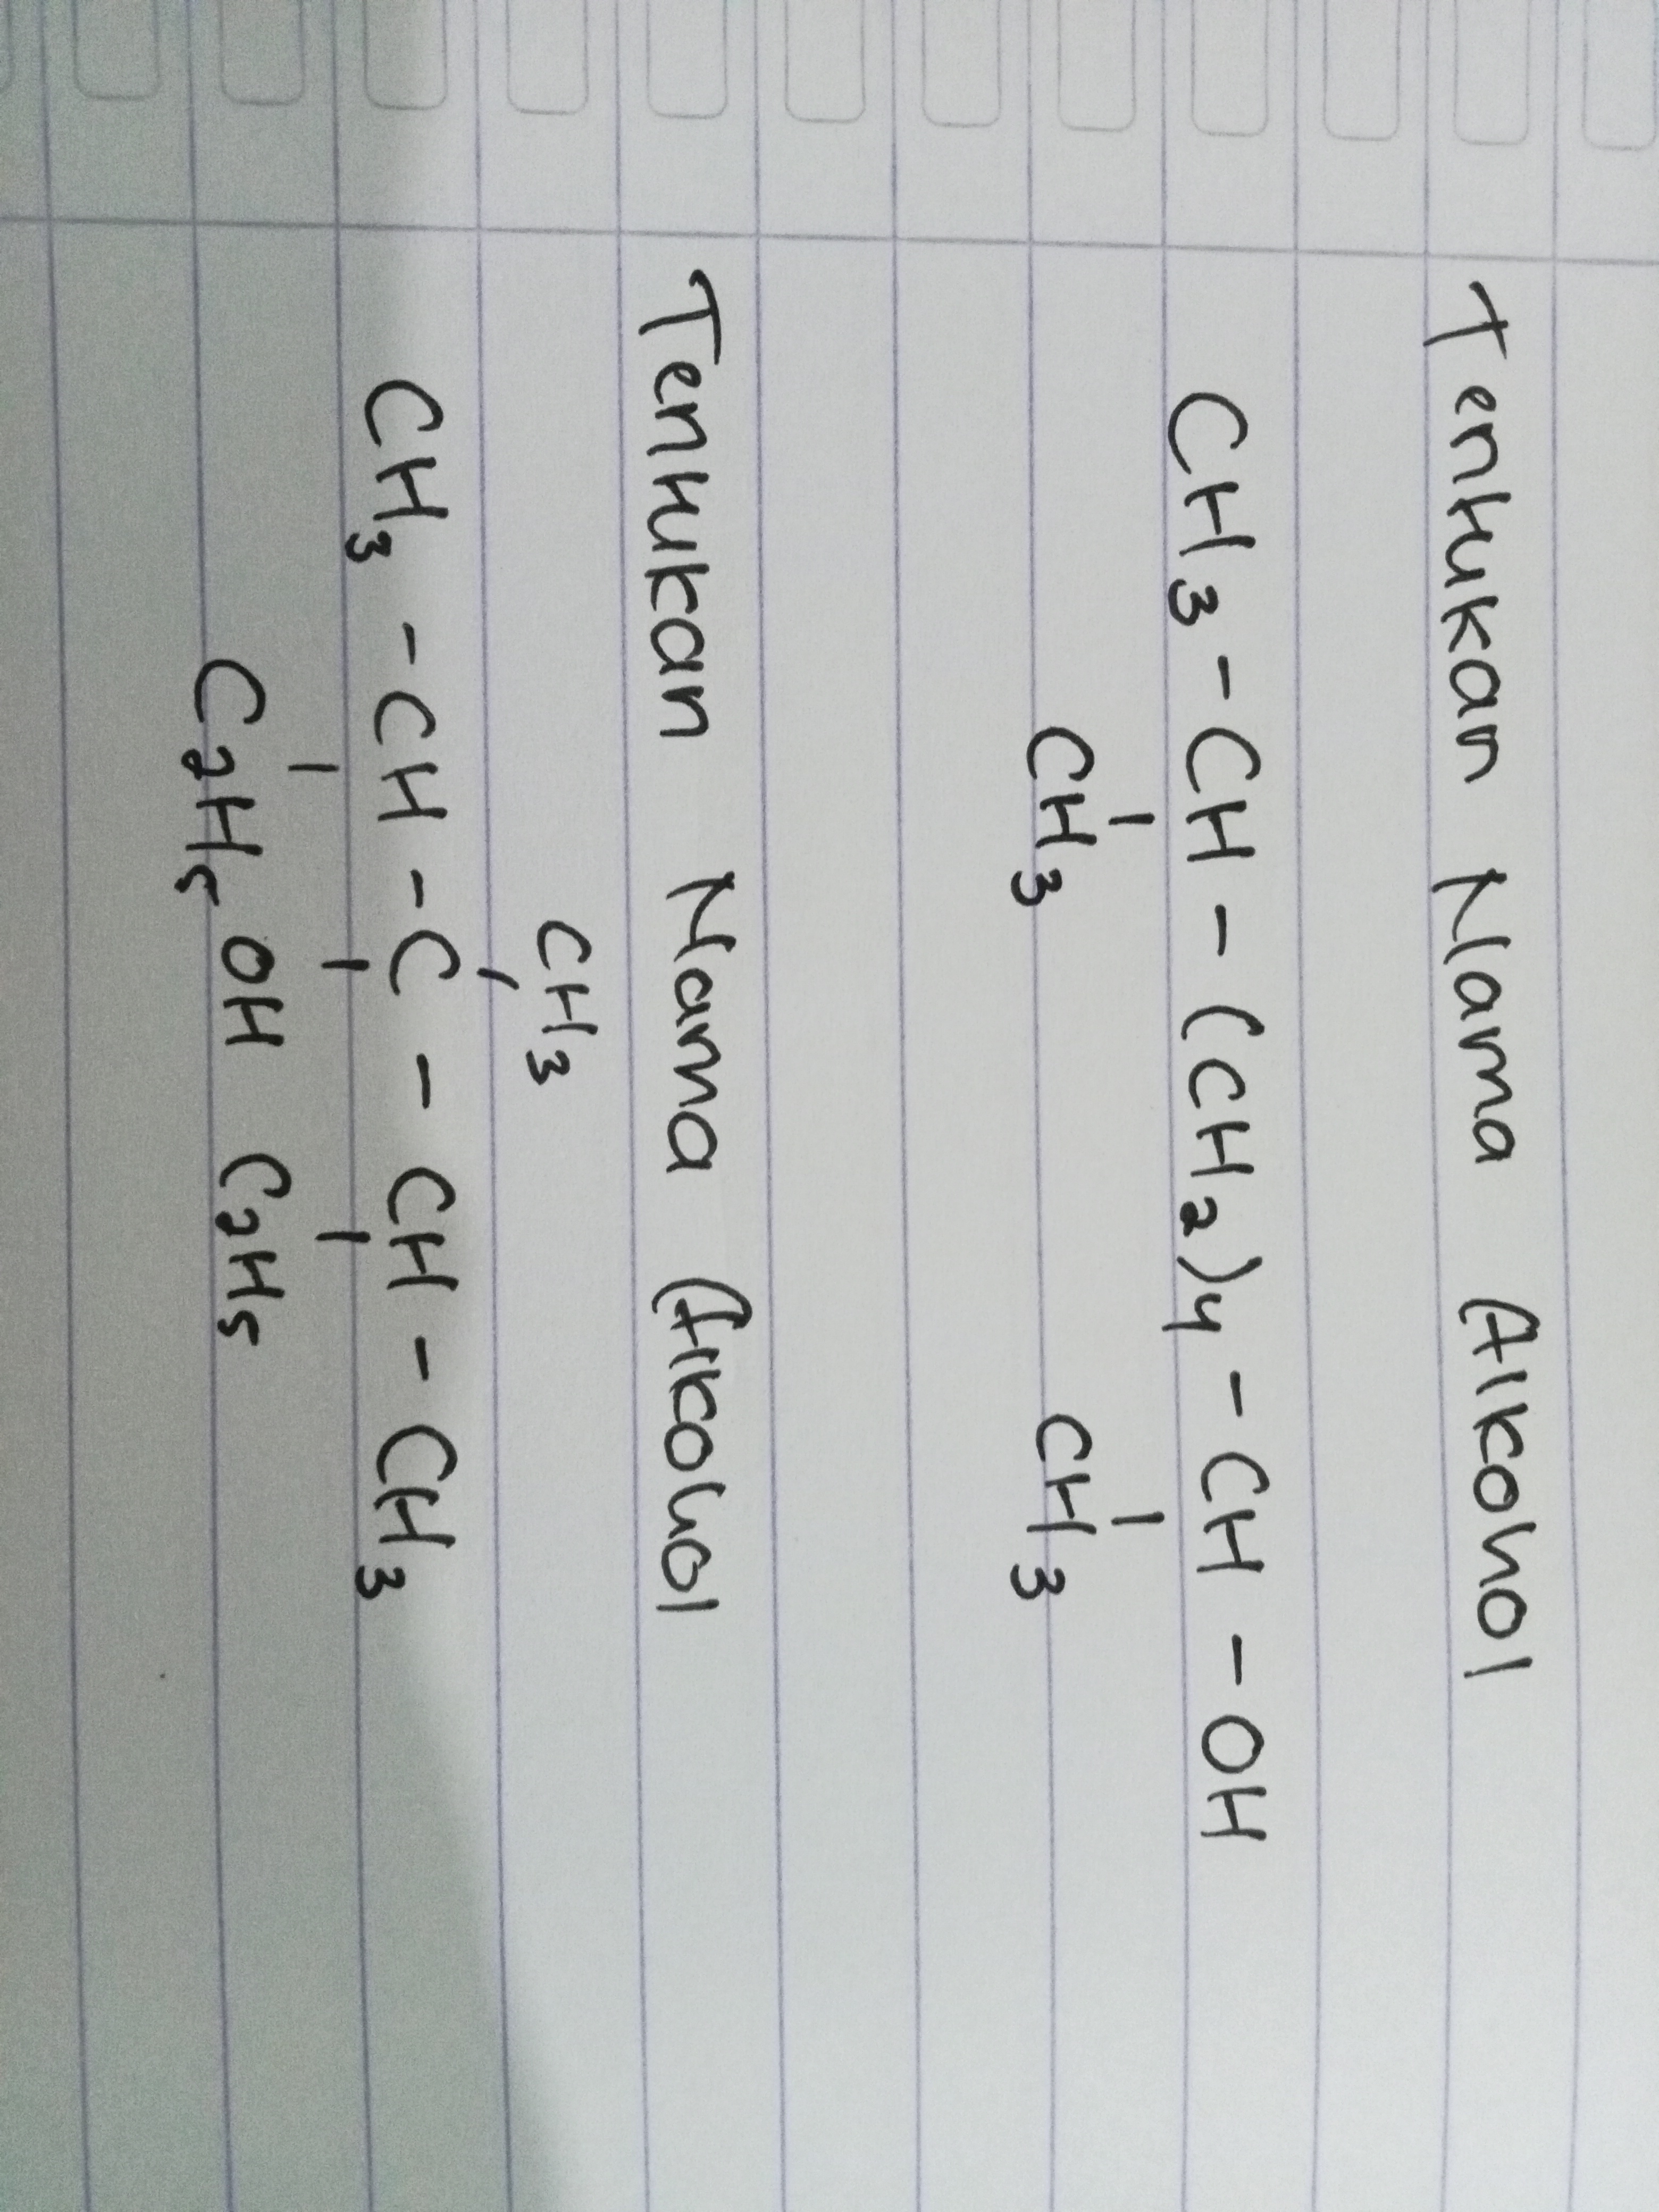 Tentukan Nama Alkohol
CH3 - CH - (CH2)4 - CH - OH
CH3 CH3
Tentukan Nama Alkohol
CH3
CH3 - CH - C - CH - CH3
C2H5 OH C2H5